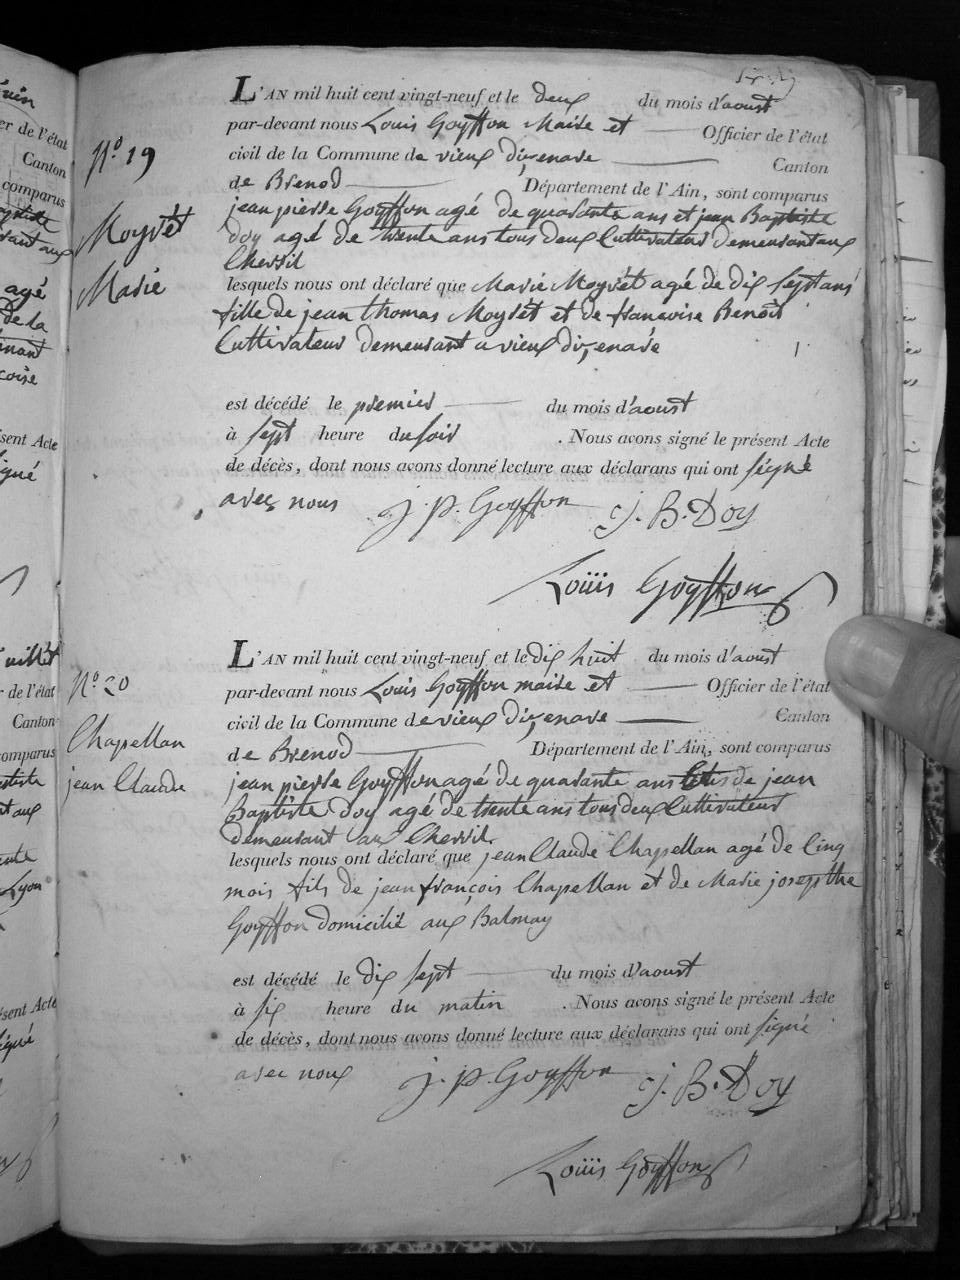 L'AN mil huit cent vingt-neuf et le deux du mois d'aoust
par-devant nous Louis Goyffon Maire et Officier de l'état
civil de la Commune de vieux d'izenave Canton
de Brenod Département de l'Ain, sont comparus
jean pierre Goyffon agé de quarante ans et jean Baptiste
Doy agé de trente ans tous deux Cultivateurs demeurant aux
Chevril
lesquels nous ont déclaré que Marie Moyrét agé de dix sept ans
fille de jean thomas Moyrét et de francoise Benoit
Cultivateur demeurant a vieux d'izenave
est décédé le premier du mois d'aoust
à sept heure du soir . Nous avons signé le présent Acte
de décès, dont nous avons donné lecture aux déclarans qui ont signé
avec nous J. p. Goyffon J. B. Doy
Louis Goyffon
N.o 19
Moyrét
Marie
L'AN mil huit cent vingt-neuf et le dix huit du mois d'aoust
par-devant nous Louis Goyffon maire et Officier de l'état
civil de la Commune de vieux d'izenave Canton
de Brenod Département de l'Ain, sont comparus
jean pierre Goyffon agé de quarante ans de jean
Baptiste Doy agé de trente ans tous deux Cultivateur
demeurant aux Chevril
lesquels nous ont déclaré que jean Claude Chapellan agé de Cinq
mois fils de jean françois Chapellan et de Marie josepthe
Goyffon domicilié aux Balmay
est décédé le dix sept du mois d'aoust
à six heure du matin . Nous avons signé le présent Acte
de décès, dont nous avons donné lecture aux déclarans qui ont signé
avec nous J. p. Goyffon J. B. Doy
Louis Goyffon
N.o 20
Chapellan
jean Claude
er de l'état
Canton
comparus
agé
de la
sent Acte
signé
uillet
r de l'état
Canton
comparus
Lyon
sent Acte